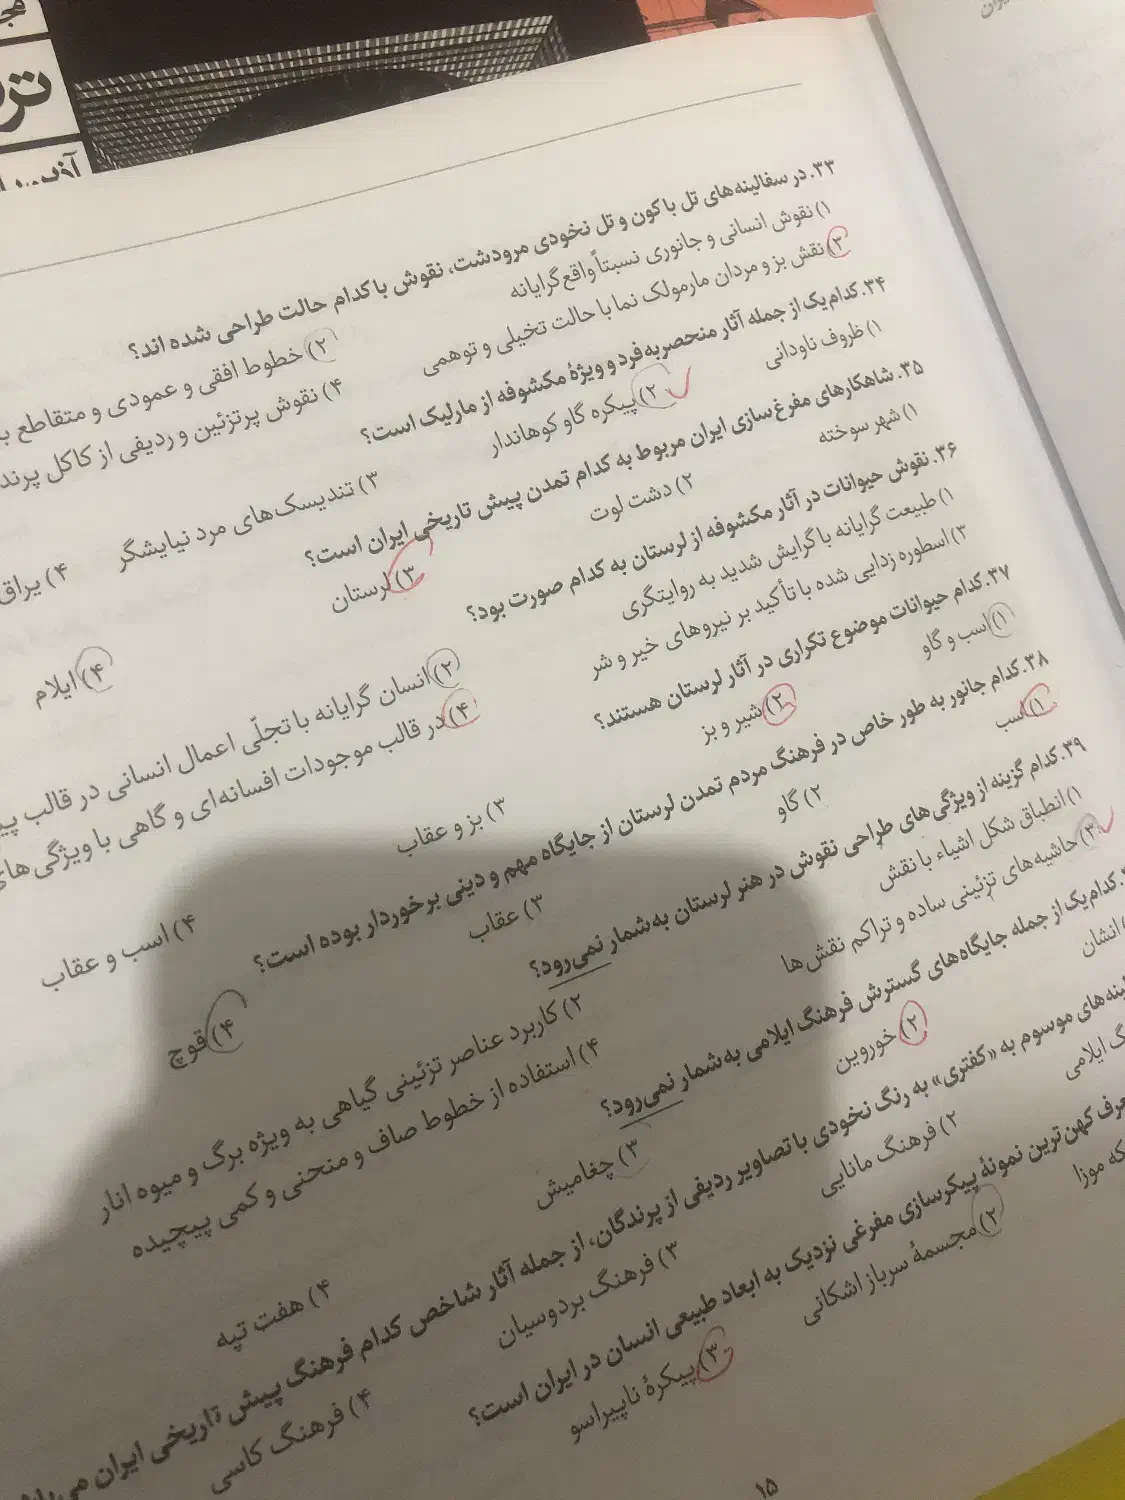 ۳۳. در سفالینه‌های تل باکون و تل نخودی مرودشت، نقوش با کدام حالت طراحی شده اند؟
۱) نقوش انسانی و جانوری نسبتاً واقع‌گرایانه
۲) خطوط افقی و عمودی و متقاطع
۳) نقش بز و مردان مارمولک نما با حالت تخیلی و توهمی
۴) نقوش پرتزئین و ردیفی از کاکل
۳۴. کدام‌یک از جمله آثار منحصربه‌فرد و ویژهٔ مکشوفه از مارلیک است؟
۱) ظروف ناودانی
۲) پیکره گاو کوهاندار
۳) تندیسک‌های مرد نیایشگر
۴) یراق
۳۵. شاهکارهای مفرغ‌سازی ایران مربوط به کدام تمدن پیش تاریخی ایران است؟
۱) شهر سوخته
۲) دشت لوت
۳) لرستان
۴) ایلام
۳۶. نقوش حیوانات در آثار مکشوفه از لرستان به کدام صورت بود؟
۱) طبیعت گرایانه با گرایش شدید به روایتگری
۲) انسان گرایانه با تجلّی اعمال انسانی در قالب
۳) اسطوره زدایی شده با تأکید بر نیروهای خیر و شر
۴) در قالب موجودات افسانه‌ای و گاهی با ویژگی‌های
۳۷. کدام حیوانات موضوع تکراری در آثار لرستان هستند؟
۱) اسب و گاو
۲) شیر و بز
۳) بز و عقاب
۴) اسب و عقاب
۳۸. کدام جانور به طور خاص در فرهنگ مردم تمدن لرستان از جایگاه مهم و دینی برخوردار بوده است؟
۱) اسب
۲) گاو
۳) عقاب
۴) قوچ
۳۹. کدام گزینه از ویژگی‌های طراحی نقوش در هنر لرستان به‌شمار نمی‌رود؟
۱) انطباق شکل اشیاء با نقش
۲) کاربرد عناصر تزئینی گیاهی به ویژه برگ و میوه انار
۳) حاشیه‌های تزئینی ساده و تراکم نقش‌ها
۴) استفاده از خطوط صاف و منحنی و کمی پیچیده
کدام‌یک از جمله جایگاه‌های گسترش فرهنگ ایلامی به‌شمار نمی‌رود؟
انشان
۲) خوروین
۳) چغامیش
۴) هفت تپه
موسوم به «کفتری» به رنگ نخودی با تصاویر ردیفی از پرندگان، از جمله آثار شاخص کدام فرهنگ پیش تاریخی ایران
ایلامی
۲) فرهنگ مانایی
۳) فرهنگ بردوسیان
۴) فرهنگ کاسی
کهن‌ترین نمونهٔ پیکرسازی مفرغی نزدیک به ابعاد طبیعی انسان در ایران است؟
موزا
۲) مجسمهٔ سرباز اشکانی
۳) پیکرهٔ ناپیراسو
۱۵